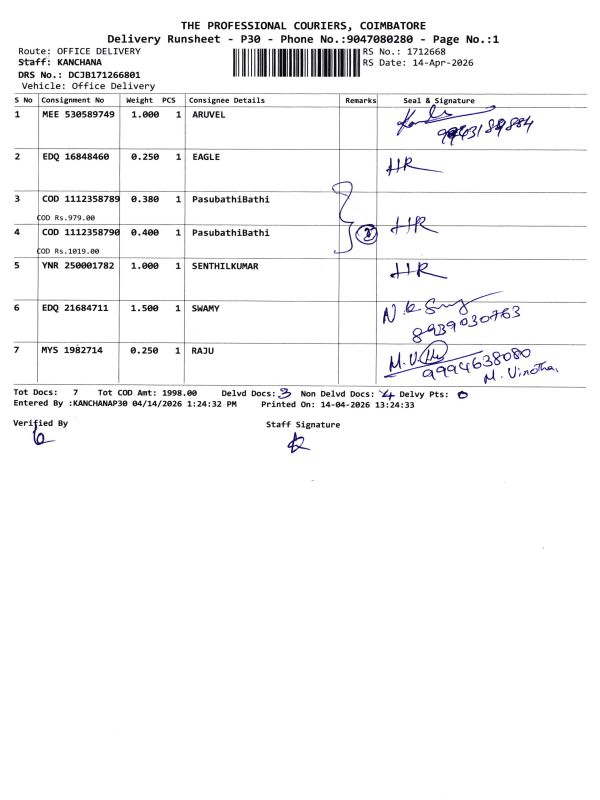 THE PROFESSIONAL COURIERS, COIMBATORE
Delivery Runsheet - P30 - Phone No.:9047080280 - Page No.:1
Route: OFFICE DELIVERY RS No.: 1712668
Staff: KANCHANA RS Date: 14-Apr-2026
DRS No.: DCJB171266801
Vehicle: Office Delivery
S No Consignment No Weight PCS Consignee Details Remarks Seal & Signature
1 MEE 530589749 1.000 1 ARUVEL
2 EDQ 16848460 0.250 1 EAGLE HR
3 COD 1112358789 0.380 1 PasubathiBathi
COD Rs.979.00 HR
4 COD 1112358790 0.400 1 PasubathiBathi
COD Rs.1019.00
5 YNR 250001782 1.000 1 SENTHILKUMAR HR
6 EDQ 21684711 1.500 1 SWAMY
8939030763
7 MYS 1982714 0.250 1 RAJU
9994638080
M. Vinotha,
Tot Docs: 7 Tot COD Amt: 1998.00 Delvd Docs: 3 Non Delvd Docs: 4 Delvy Pts: 0
Entered By :KANCHANAP30 04/14/2026 1:24:32 PM Printed On: 14-04-2026 13:24:33
Verified By Staff Signature